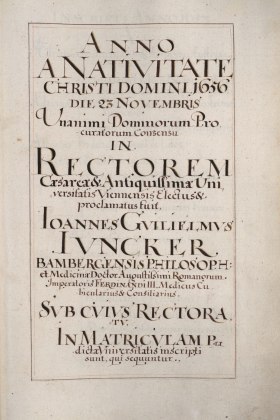 ANNO
A NATIVITATE
CHRISTI DOMINI, 1656
DIE 23 NOVEMBRIS
Unanimi Dominorum Pro,
curatorum Consensu
IN
RECTOREM
Cæsareæ & Antiquissimæ Uni,
versitatis Viennensis Electus &
proclamatus fuit,
IOANNES GUILIELMVS
IVNCKER,
BAMBERGENSIS PHILOSOPH:
et Medicinæ Doctor, Augustissimi Romanorum
Imperatoris FERDINANDI III, Medicus Cu,
bicularius & Consiliarius.
SUB CVIVS RECTORA,
TU.
IN MATRICULAM Præ
dictæ Universitatis inscripti
sunt, qui sequuntur.